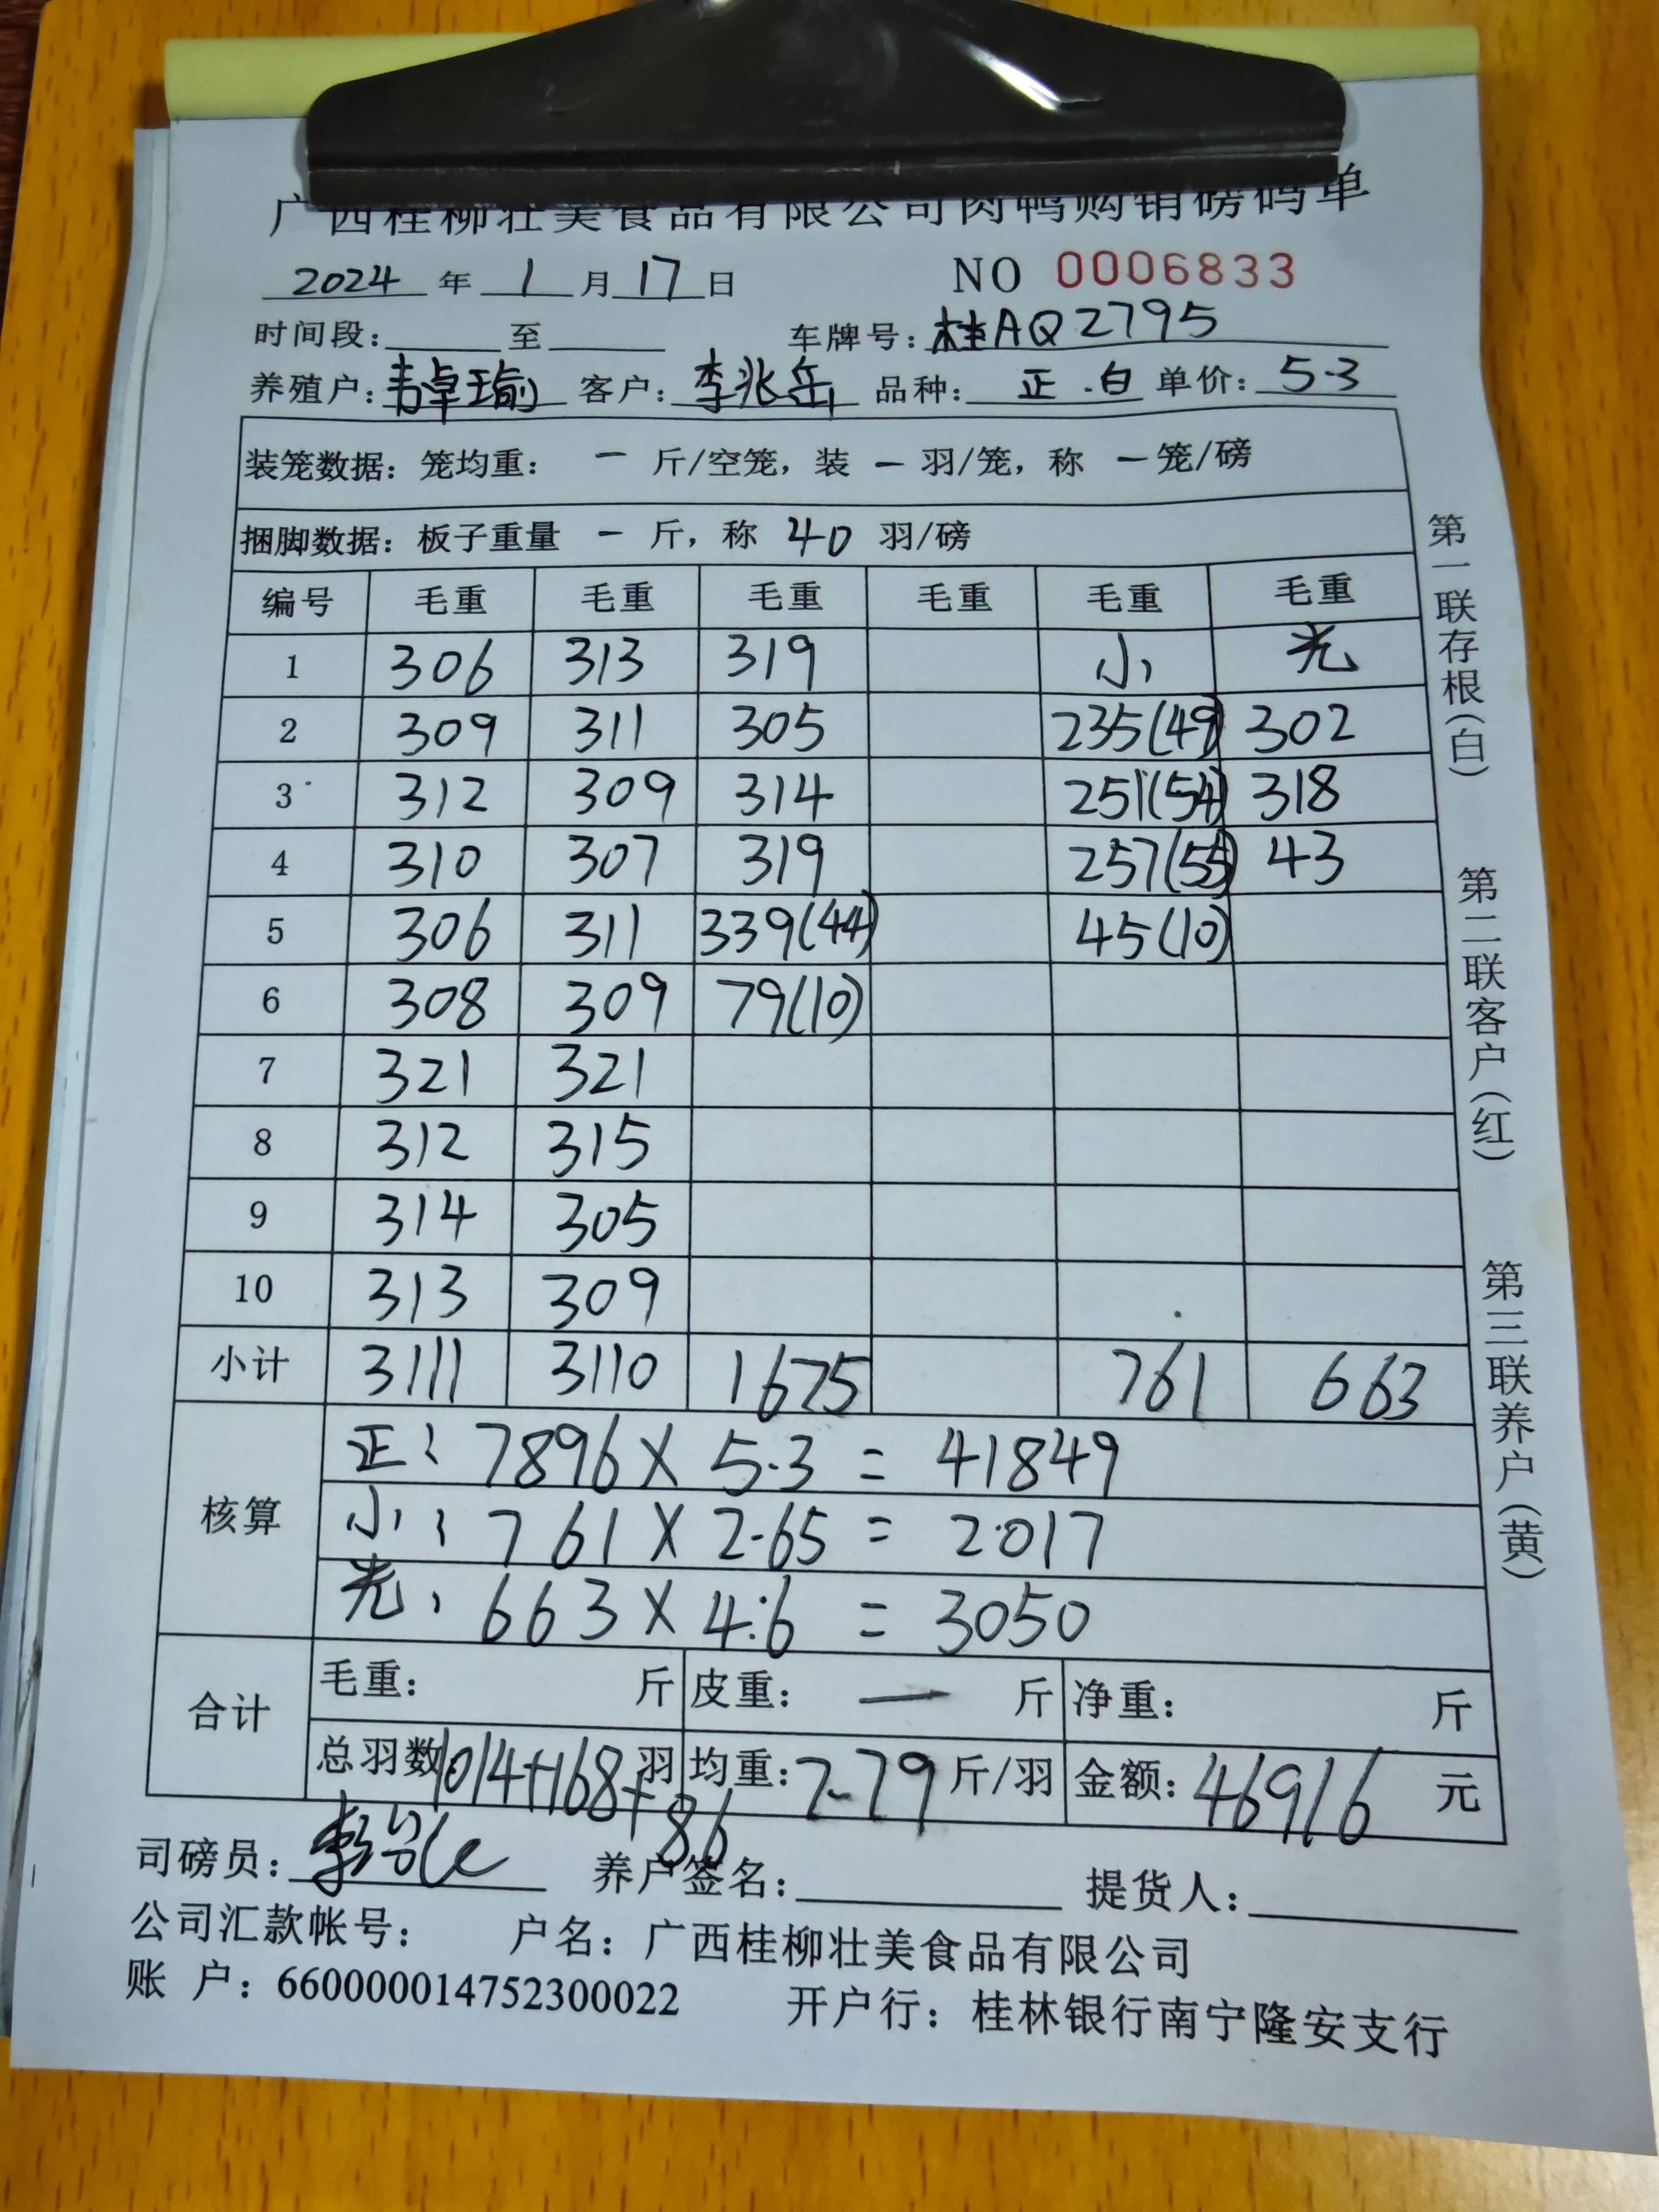 广西桂柳壮美食品有限公司肉鸭购销磅码单
2024 年 1 月 17 日 NO 0006833
时间段: 至 车牌号: 桂AQ2795
养殖户: 韦卓瑜 客户: 李兆岳 品种: 正.白 单价: 5.3
装笼数据: 笼均重: 一 斤/空笼, 装 一 羽/笼, 称 一 笼/磅
捆脚数据: 板子重量 一 斤, 称 40 羽/磅
编号 毛重 毛重 毛重 毛重 毛重 毛重
1 306 313 319 小 光
2 309 311 305 235(49) 302
3 312 309 314 251(54) 318
4 310 307 319 257(55) 43
5 306 311 339(44) 45(10)
6 308 309 79(10)
7 321 321
8 312 315
9 314 305
10 313 309
小计 3111 3110 1675 761 663
核算 正: 7896 X 5.3 = 41849
小: 761 X 2.65 = 2017
光: 663 X 4.6 = 3050
合计 毛重: 斤 皮重: 一 斤 净重: 斤
总羽数 1014+168+86 羽 均重: 7.79 斤/羽 金额: 46916 元
司磅员: 养户签名: 提货人:
公司汇款帐号: 户名: 广西桂柳壮美食品有限公司
账 户: 660000014752300022 开户行: 桂林银行南宁隆安支行
第一联存根(白)
第二联客户(红)
第三联养户(黄)